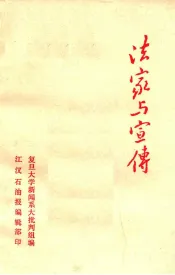 法家与宣传
复旦大学新闻系大批判组编
江汉石油报编辑部印